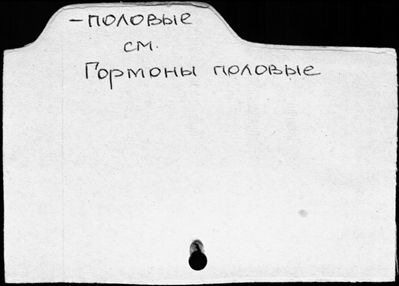 -половые
см.
Гормоны половые